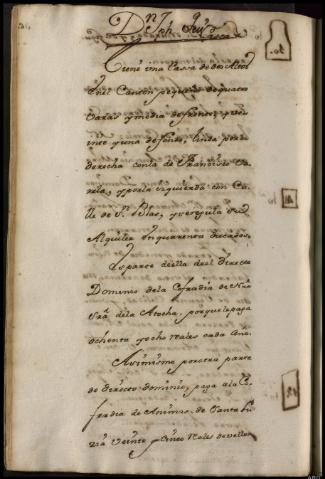 Dn. Jph.
Tiene una Cassa de dos Altos
en el Canton pequeño de quatro
varas y media de frente, y
y una de fondo, linda por la
derecha con la de Francisco Va
rela, y por la izquierda con Ca
lle de Sn. Blas, y regula su
Alquiler en quarenta ducados,
Es parte de ella del directo
Dominio de la Cofradia de Nra
Srã. de la Atocha, por que la paga
ochenta y ocho Reales cada año.
Assimismo por otra parte
de directo dominio, paga a la Co
fradia de Animas de Santa Lu
zia veinte y cinco Reales de vellon